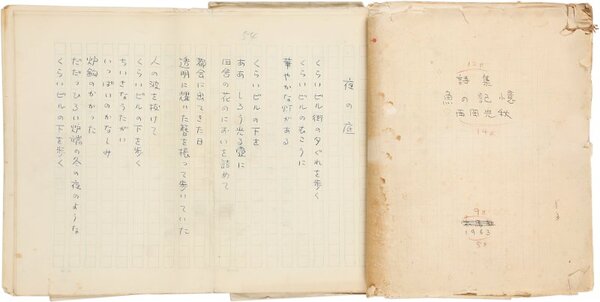 54
夜の庭
くらいビル街の夕ぐれを歩く
くらいビルのむこうに
華やかな灯がある
くらいビルの下を
ああ しろう光る壷に
田舎の花のにおいを詰めて
都会に出てきた日
透明に を振って歩いていた
人の波を抜けて
くらいビルの下を歩く
ちいさなうたがい
いっぱいのかなしみ
炉鈎のかかった
だだっぴろい炉端の冬の夜のような
くらいビルの下を歩く
12ポ
詩集
魚の記憶
西岡光秋
14ポ
9ポ
1963
5ポ